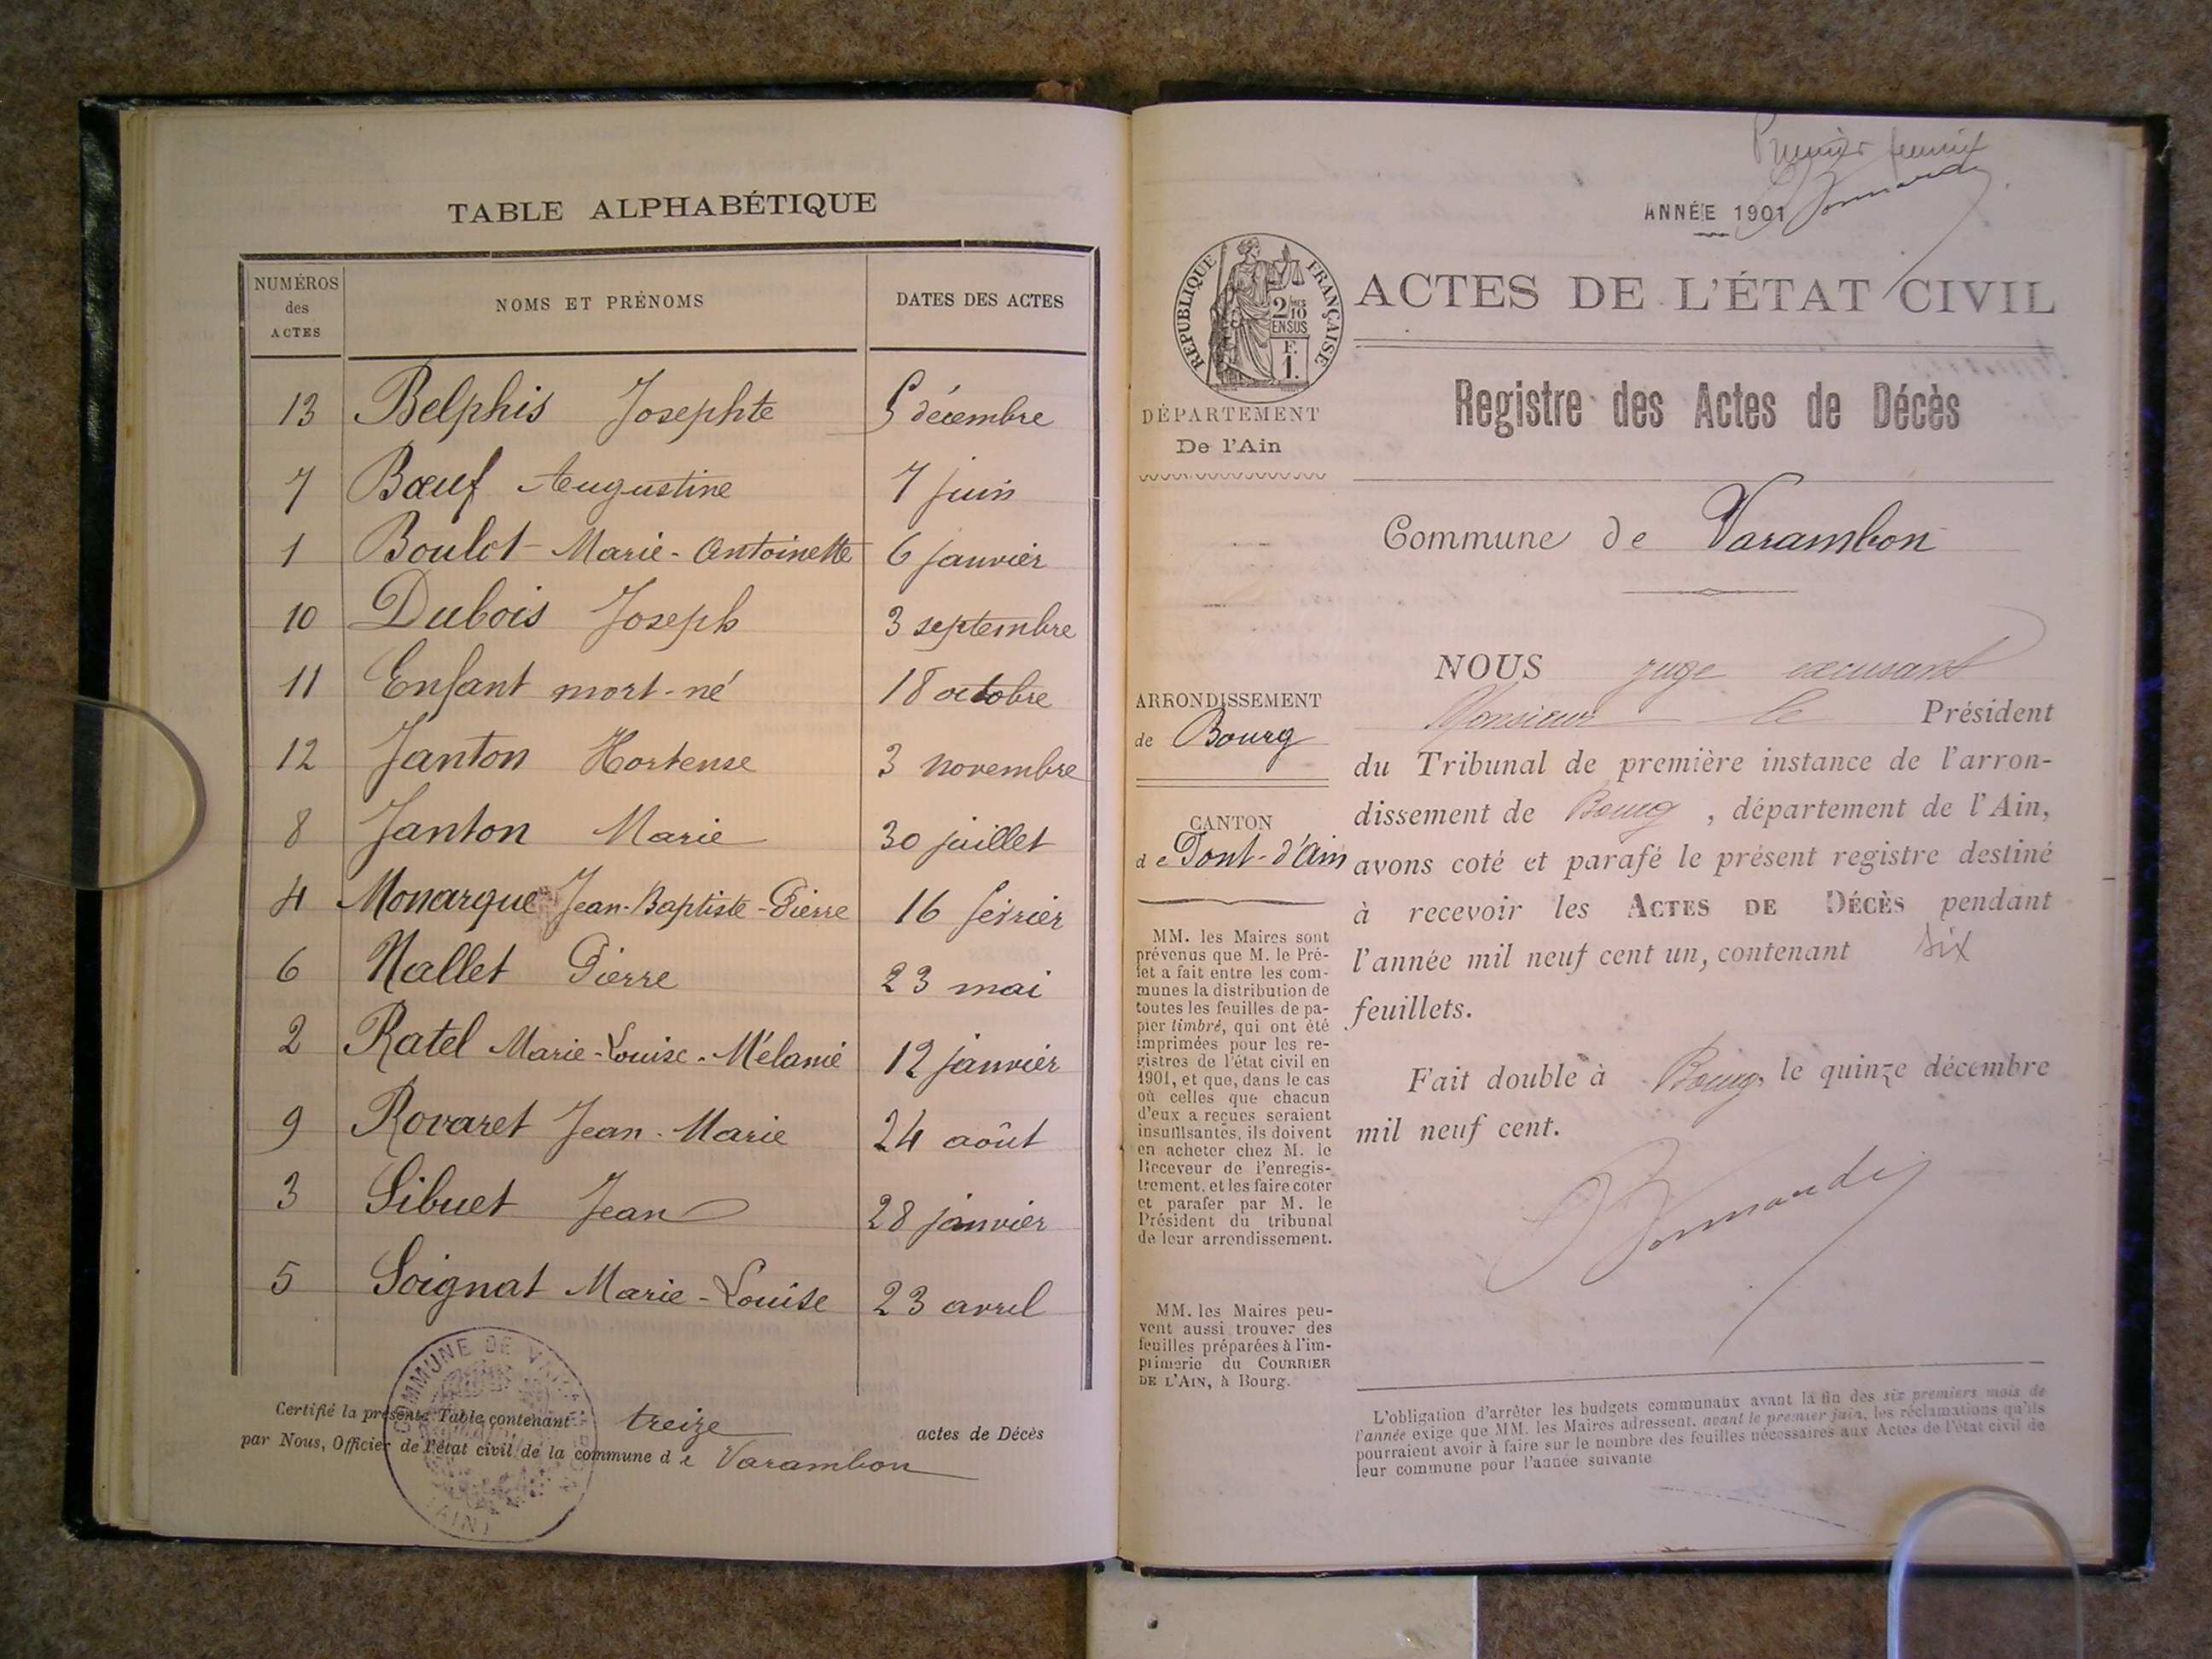 TABLE ALPHABÉTIQUE
NUMÉROS des ACTES
NOMS ET PRÉNOMS
DATES DES ACTES
13 Belphis Josephte 5 décembre
7 Bœuf Augustine 7 juin
1 Boulot Marie-Antoinette 6 janvier
10 Dubois Joseph 3 septembre
11 Enfant mort-né 18 octobre
12 Janton Hortense 3 novembre
8 Janton Marie 30 juillet
4 Monarque Jean-Baptiste-Pierre 16 février
6 Nallet Pierre 23 mai
2 Ratel Marie-Louise-Mélanie 12 janvier
9 Rovaret Jean-Marie 24 août
3 Sibuet Jean 28 janvier
5 Soignat Marie-Louise 23 avril
Certifié la présente Table contenant treize actes de Décès
par Nous, Officier de l'état civil de la commune de Varambon
COMMUNE DE
(AIN)
Premier feuillet
ANNÉE 1901
RÉPUBLIQUE FRANÇAISE
2/10
EN SUS
F.
1.
ACTES DE L'ÉTAT CIVIL
Registre des Actes de Décès
DÉPARTEMENT
De l'Ain
Commune de Varambon
ARRONDISSEMENT
de Bourg
CANTON
de Pont-d'Ain
MM. les Maires sont
prévenus que M. le Pré-
fet a fait entre les com-
munes la distribution de
toutes les feuilles de pa-
pier timbré, qui ont été
imprimées pour les re-
gistres de l'état civil en
1901, et que, dans le cas
où celles que chacun
d'eux a reçues seraient
insuffisantes, ils doivent
en acheter chez M. le
Receveur de l'enregis-
trement, et les faire coter
et parafer par M. le
Président du tribunal
de leur arrondissement.
MM. les Maires peu-
vent aussi trouver des
feuilles préparées à l'im-
primerie du COURRIER
DE L'AIN, à Bourg.
NOUS juge
Monsieur le Président
du Tribunal de première instance de l'arron-
dissement de Bourg, département de l'Ain,
avons coté et parafé le présent registre destiné
à recevoir les ACTES DE DÉCÈS pendant
l'année mil neuf cent un, contenant six
feuillets.
Fait double à Bourg, le quinze décembre
mil neuf cent.
L'obligation d'arrêter les budgets communaux avant la fin des six premiers mois de
l'année exige que MM. les Maires adressent, avant le premier juin, les réclamations qu'ils
pourraient avoir à faire sur le nombre des feuilles nécessaires aux Actes de l'état civil de
leur commune pour l'année suivante